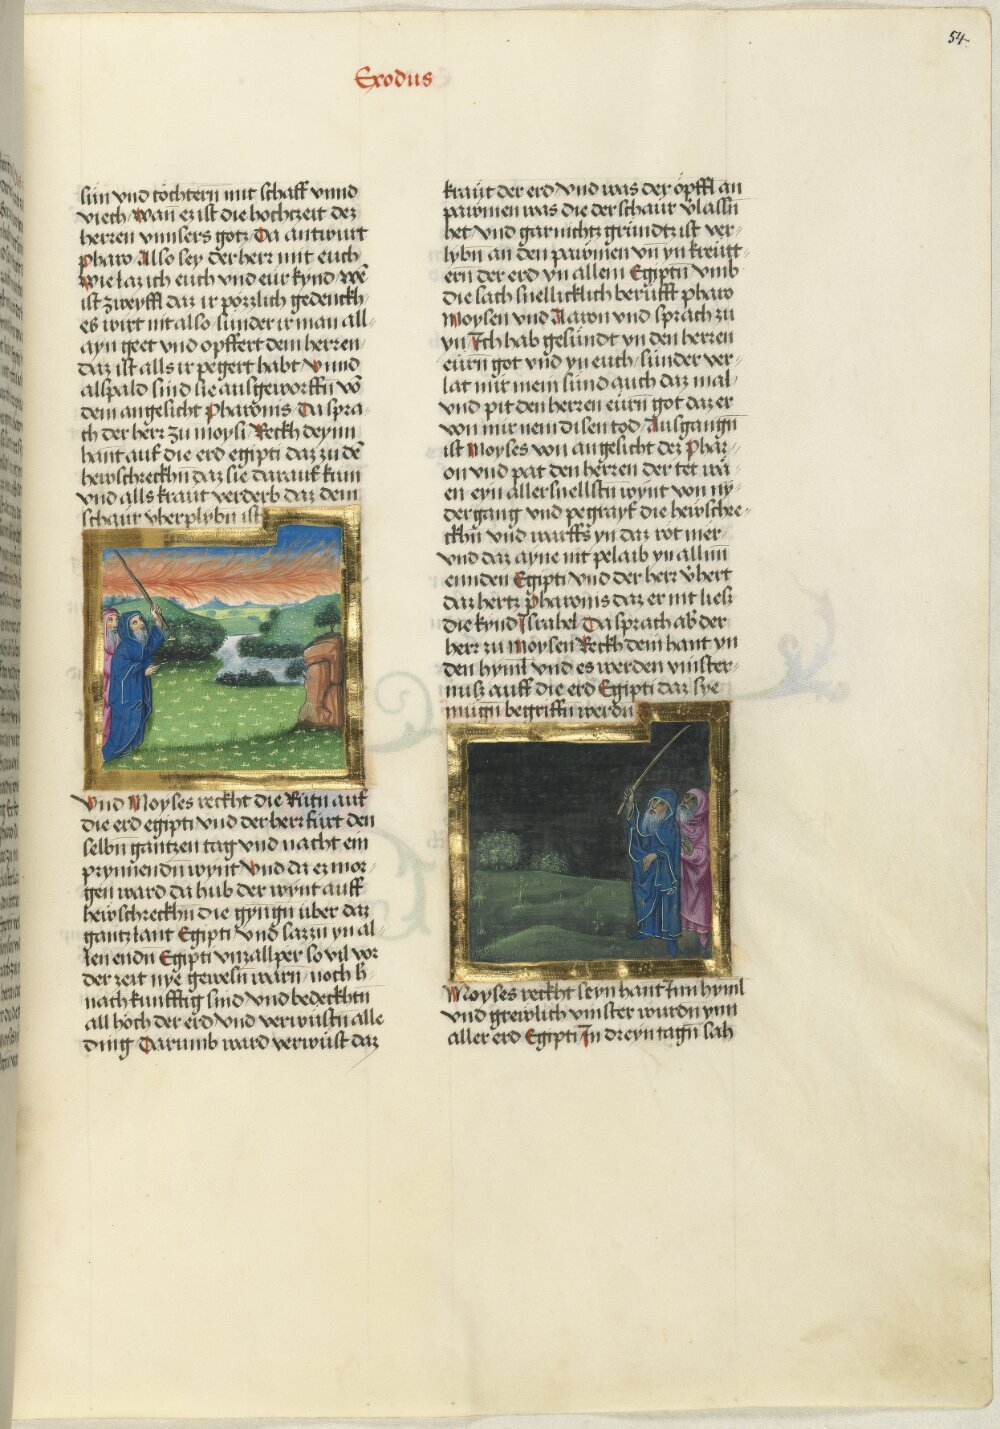 54.
Exodus
sün vnd töchtern mit schaff vnnd
viech Wan ez ist die hochtzeit dez
herren vnnsers gotz Da antwurt
Pharo Allso sey der herr mit euch
Wie laz ich euch vnd eur kynd Wē
ist zweyffl daz ir pözzlich gedenckh
es wirt nit also sunder ir man all
ayn geet vnd opffert dem herren
daz ist alls ir pegert habt Vnnd
alspald sind sie ausgeworffn võ
dem angesicht Pharonis Da spra
ch der herr zu moysi Reckh deynn
hant auf die erd egipti daz zu dē
hewschreckhn daz sie darauf kum
vnd alls kraut verderb daz dem
schaur vberplybn ist
Vnd Moyses reckht die Rutn auf
die erd egipti vnd der herr fürt den
selbn gantzen tag vnd nacht ein
prynnendn wynt Vnd da ez mor
gen ward da hub der wynt auff
hewschreckhn die gyngn über daz
gantz lant Egipti Vnd sazzn yn al
len endn Egipti vnzallper so vil vor
der zeit nye gewesn warn noch h
nach kunfftig sind Vnd bedeckhtn
all höch der erd Vnd verwüstn alle
ding Darumb ward verwüst daz
kraut der erd Vnd was dez öpffl an
pawmen was die der schaur v̈lassn
het Vnd gar nichtz gründtz ist ver
lybn an den pawmen vn̄ yn kreutt
ern der erd yn allem Egiptn vmb
die sach snellicklich berufft pharo
Moysen vnd Aaron vnd sprach zu
yn Ich hab gesündt yn den herren
eurn got vnd yn euch sunder ver
lat mir mein sünd auch daz mal
vnd pit den herren eurn got daz er
von mir nem disen tod Ausgangn
ist Moyses von angesicht dez Phar
on vnd pat den herren der tet wä
en eyn aller snellstn wynt von ny
dergang vnd pegrayf die hewschre
ckhn vnd warffs yn daz rot mer
vnd daz ayne nit pelaib yn allnn
ennden Egipti Vnd der herr v̈hert
daz hertz Pharonis daz er nit liesz
die kynd Israhel Da sprach ab der
herr zu moysen Reckh dein hant yn
den hyml vnd es werden vinster
nusz auff die erd Egipti daz sye
mügn begriffn werdn
Moyses reckht seyn hant Inn hyml
vnd grewlich vinster wurdn ynn
aller erd Egipti In dreyn tagn sah